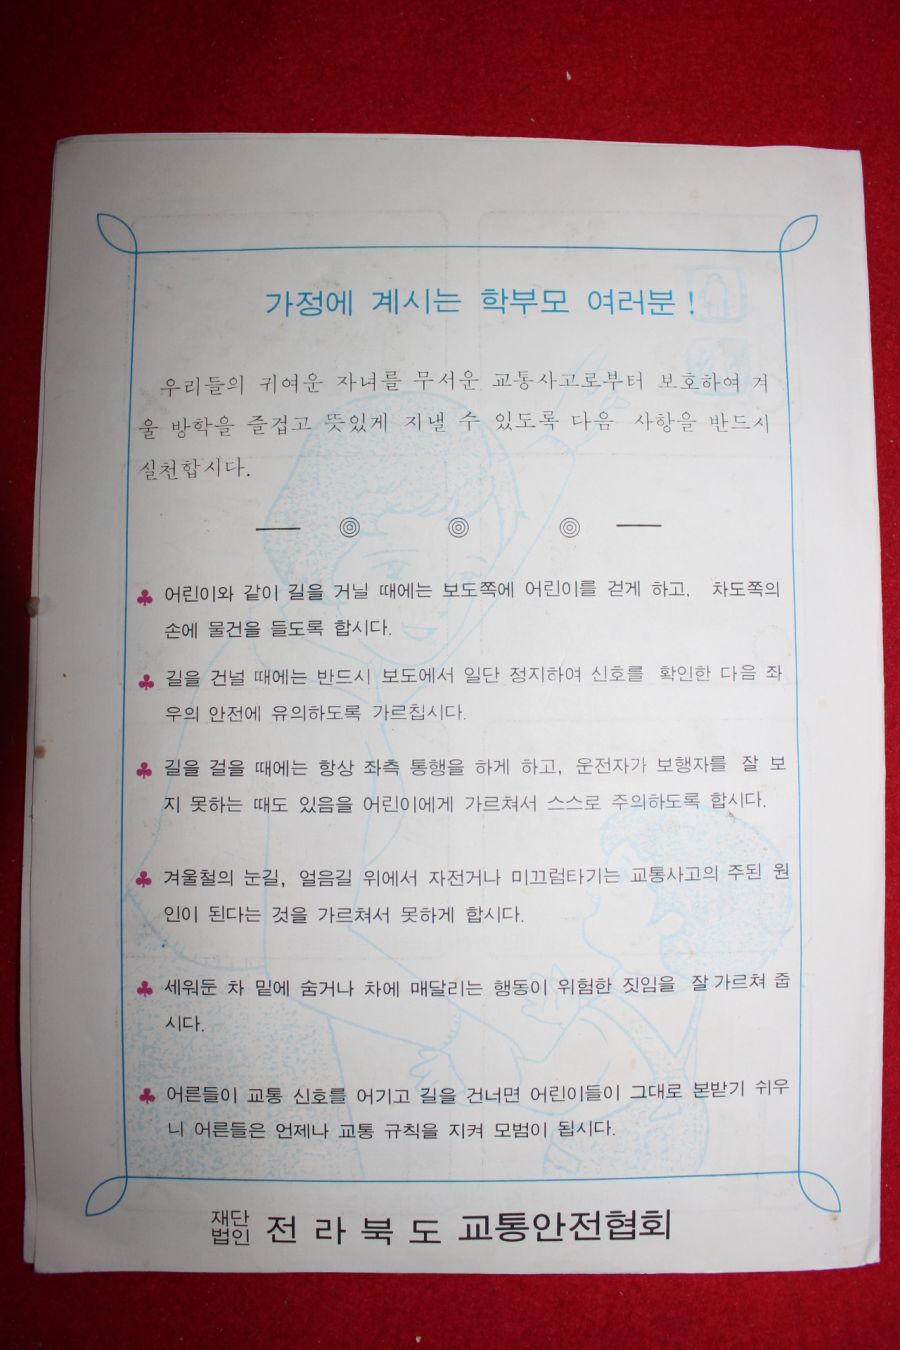 가정에 계시는 학부모 여러분!
우리들의 귀여운 자녀를 무서운 교통사고로부터 보호하여 겨
울 방학을 즐겁고 뜻있게 지낼 수 있도록 다음 사항을 반드시
실천합시다.
♣ 어린이와 같이 길을 거닐 때에는 보도쪽에 어린이를 걷게 하고, 차도쪽의
손에 물건을 들도록 합시다.
♣ 길을 건널 때에는 반드시 보도에서 일단 정지하여 신호를 확인한 다음 좌
우의 안전에 유의하도록 가르칩시다.
♣ 길을 걸을 때에는 항상 좌측 통행을 하게 하고, 운전자가 보행자를 잘 보
지 못하는 때도 있음을 어린이에게 가르쳐서 스스로 주의하도록 합시다.
♣ 겨울철의 눈길, 얼음길 위에서 자전거나 미끄럼타기는 교통사고의 주된 원
인이 된다는 것을 가르쳐서 못하게 합시다.
♣ 세워둔 차 밑에 숨거나 차에 매달리는 행동이 위험한 짓임을 잘 가르쳐 줍
시다.
♣ 어른들이 교통 신호를 어기고 길을 건너면 어린이들이 그대로 본받기 쉬우
니 어른들은 언제나 교통 규칙을 지켜 모범이 됩시다.
재단법인 전라북도 교통안전협회